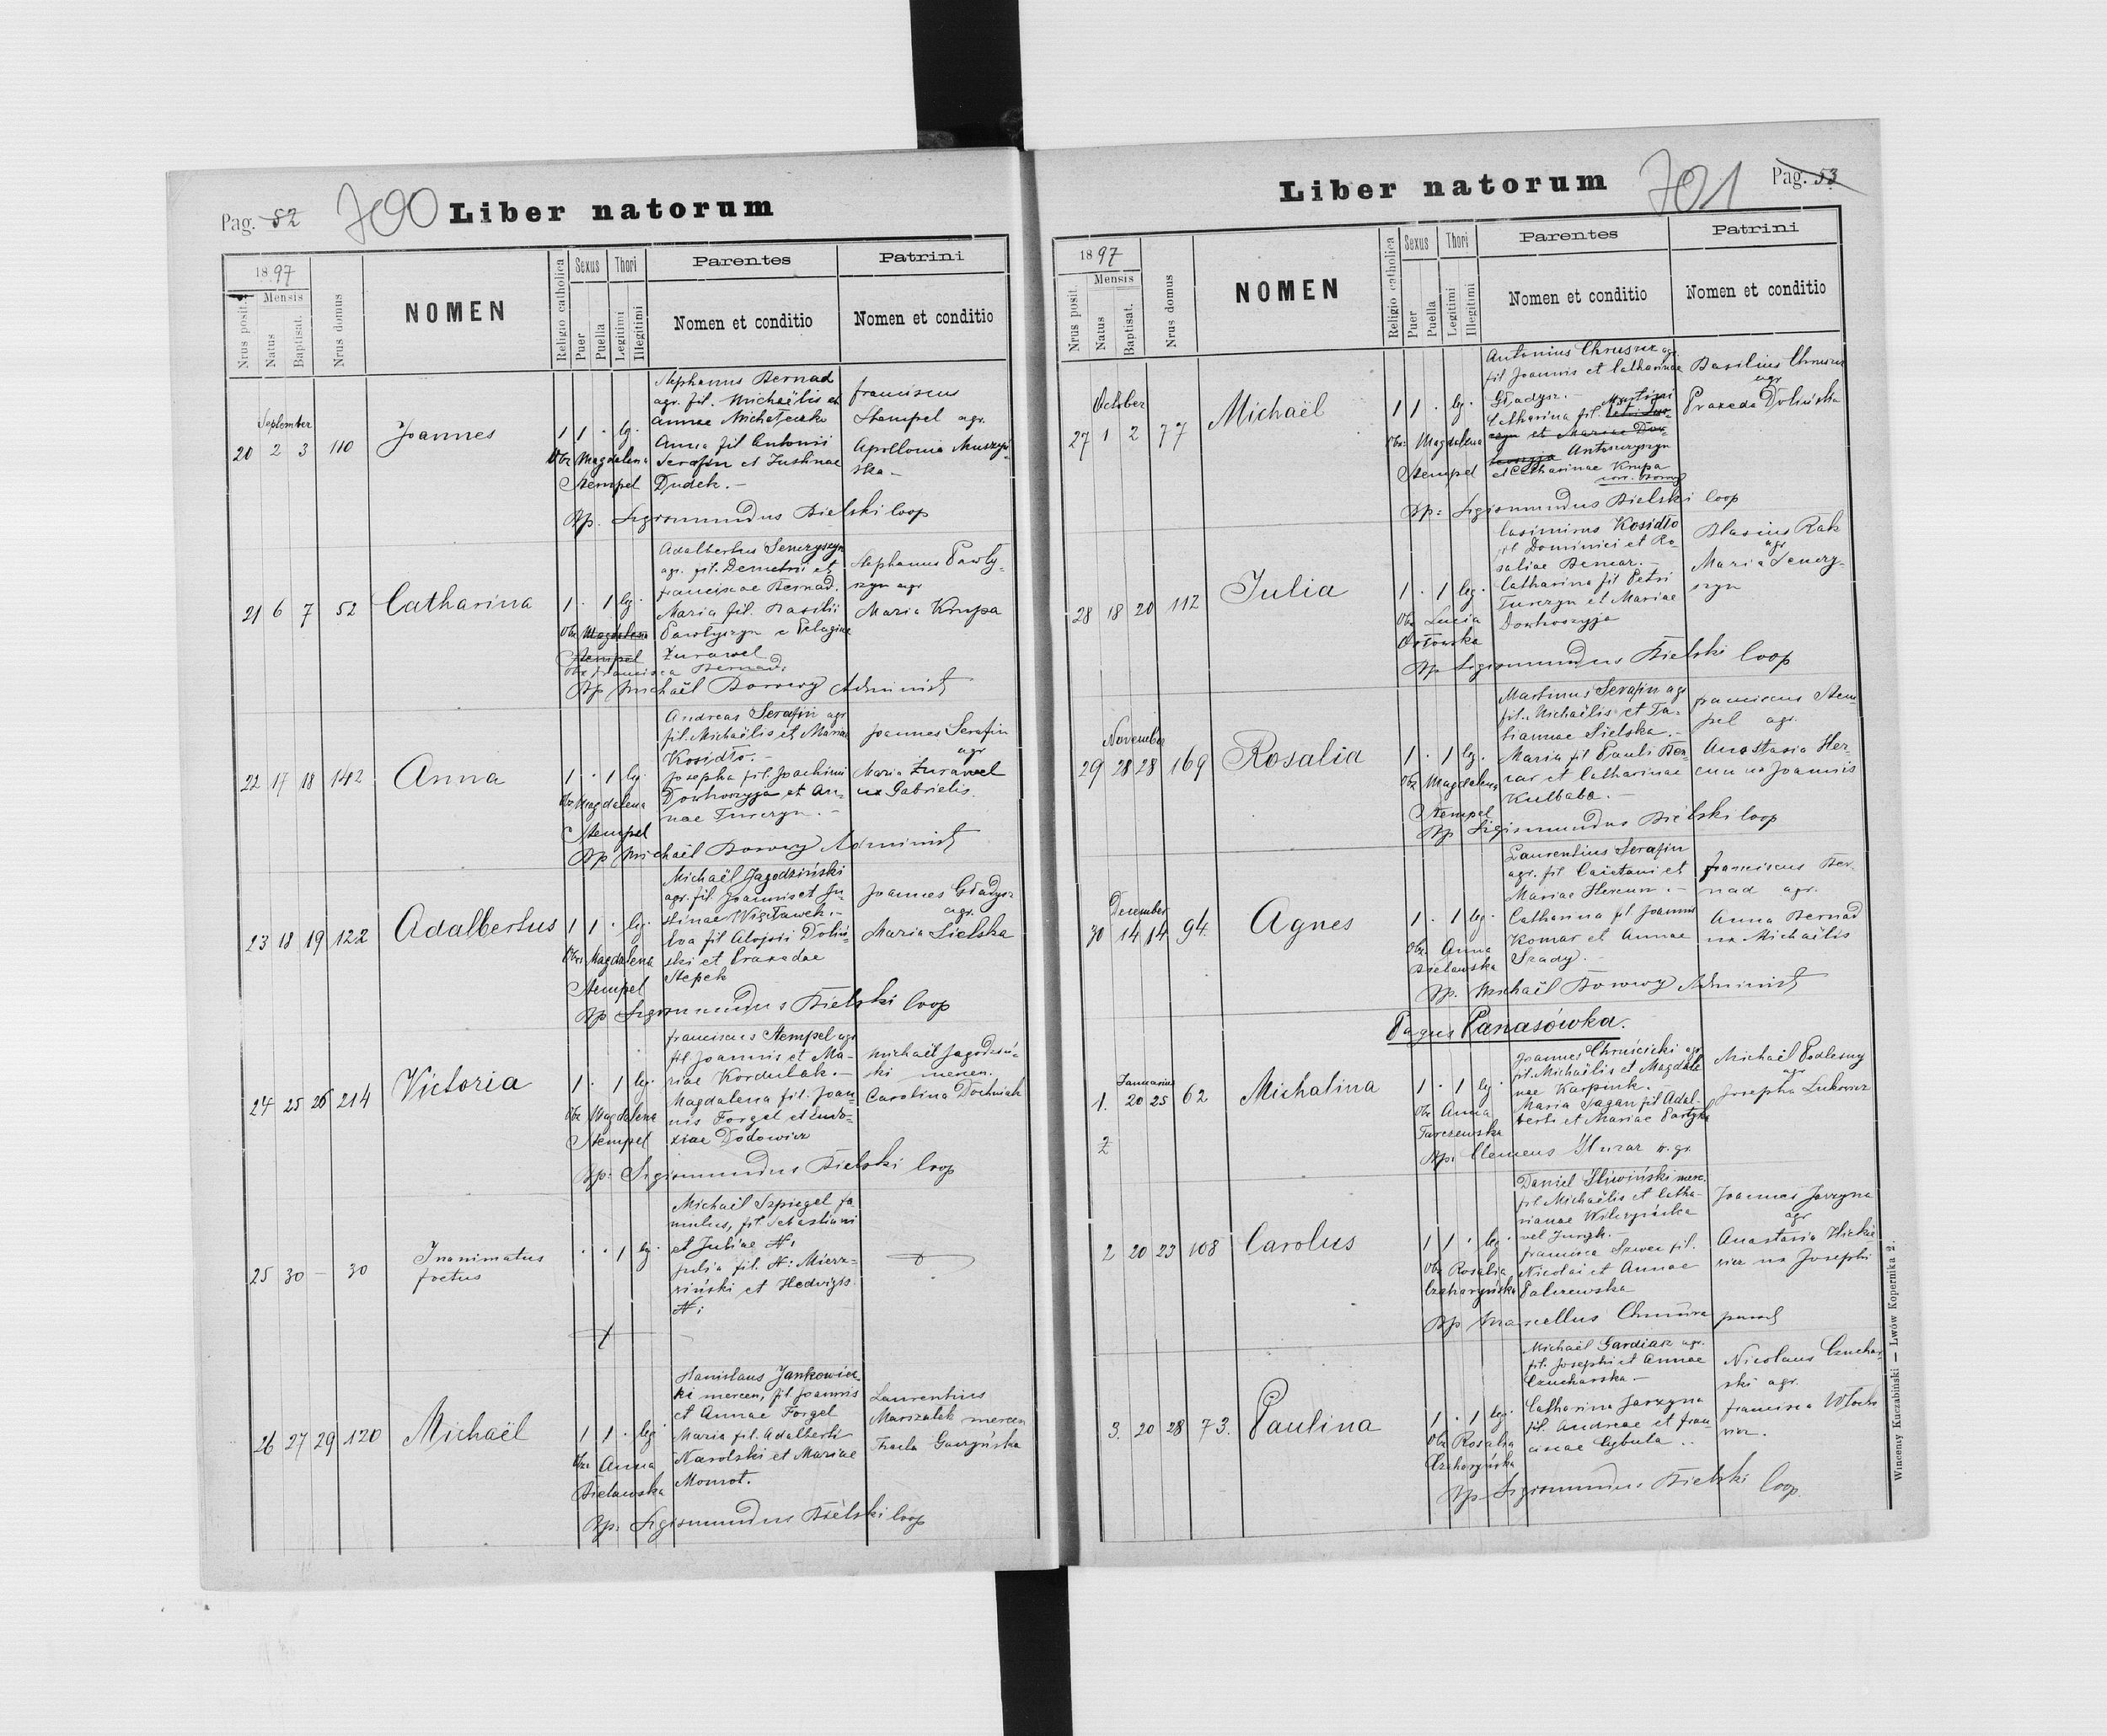 Pag. 52
700
Liber natorum
1897
Nrus posit.
Mensis
Natus
Baptisat.
Nrus domus
NOMEN
Religio catholica
Sexus
Puer
Puella
Thori
Legitimi
Illegitimi
Parentes
Nomen et conditio
Patrini
Nomen et conditio
September
20 2 3 110 Joannes 1 1 · lg.
Obr Magdalena
Stempel
Stephanus Bernad
agr. fil. Michaëlis et
Annae
Anna fil Antonii
Serafin et Justinae
Dudek. –
Franciscus
Stempel agr.
Apollonia Muszyń-
ska –
Bp. Sigismundus Bielski Coop
21 6 7 52 Catharina 1 · 1 lg.
Obr Magdalena
Stempel
Obr Francisca Bernad
Adalbertus Senczyszyn
agr. fil. Demetrii et
Franciscae Bernad.
Maria fil. Basilii
Pawłyszyn e Pelagiae
Żurawel
Stephanus Pawły-
szyn agr
Maria Krupa
Bp Michaël Borowy Administ
22 17 18 142 Anna 1 · 1 lg.
Obr Magdalena
Stempel
Andreas Serafin agr
fil. Michaëlis et Mariae
Kosidło. –
Josepha fil. Joachimi
Dowhoszyja et An-
nae Turczyn. –
Joannes Serafin
agr
Maria Żurawel
ux Gabrielis.
Bp Michaël Borowy Administ
23 18 19 122 Adalbertus 1 1 · lg.
Obr. Magdalena
Stempel
Michaël Jagodziński
agr. fil. Joannis et Ju-
stinae Wisławek. –
Eva fil Alojsii Doliń-
ski et Praxedae
Stepek
Joannes Gładysz
agr.
Maria Sielska
Bp Sigismundus Bielski Coop
24 25 26 214 Victoria 1 · 1 lg.
Obr Magdalena
Stempel
Franciscus Stempel agr
fil Joannis et Ma-
riae Kordulak. –
Magdalena fil. Joan-
nis Forgel et Eudo-
xiae Dodowicz
Michaël Jagodziń-
ski mercen.
Carolina Dochniak
Bp. Sigismundus Bielski Coop
25 30 – 30 Inanimatus
foetus
· · 1 lg.
Michaël Szpiegel fa
mulus, fil. Sebastiani
et Juliae N:
Julia fil. N: Mierz-
wiński et Hedwigis
N:
26 27 29 120 Michaël 1 1 · lg
Obr Anna
Bielawska
Stanislaus Jankowiec-
ki mercen, fil Joannis
et Annae Forgel
Maria fil. Adalberti
Narolski et Mariae
Momot.
Laurentius
Marszałek mercen
Thecla Gaczyńska
Bp. Sigismundus Bielski Coop
Liber natorum
701
Pag. 53
1897
Nrus posit.
Mensis
Natus
Baptisat.
Nrus domus
NOMEN
Religio catholica
Sexus
Puer
Puella
Thori
Legitimi
Illegitimi
Parentes
Nomen et conditio
Patrini
Nomen et conditio
October
27 1 2 77 Michaël 1 1 · lg.
Obr: Magdalena
Stempel
Antonius Chruszcz agr.
fil Joannis et Catharinae
Gładysz. –
Catharina fil. Martini
Antoszyszyn
et Catharinae Krupa
Basilius Chruszcz
agr
Praxeda Dolińska
Bp: Sigismundus Bielski Coop
28 18 20 112 Julia 1 · 1 leg.
Obr Lucia
Orłowska
Casimirus Kosidło
fil Dominici et Ro-
saliae Bernar. –
Catharina fil Petri
Turczyn et Mariae
Dowhoszyja
Blasius Rak
agr
Maria Senczy-
szyn
Bp Sigismundus Bielski Coop
November
29 28 28 169 Rosalia 1 · 1 lg.
Obr Magdalena
Stempel
Martinus Serafin agr
fil. Michaëlis et Ta-
tiannae Sielska. –
Maria fil Pauli Ber-
nar et Catharinae
Kulbaba. –
Franciscus Stem
pel agr.
Anastasia Her-
cun ux Joannis
Bp Sigismundus Bielski Coop
December
30 14 14 94. Agnes 1 · 1 lg.
Obr Anna
Bielawska
Laurentius Serafin
agr. fil Caietani et
Mariae Hercun. –
Catharina fil Joannis
Komar et Annae
Szady. –
Franciscus Ber-
nad agr.
Anna Bernad
ux Michaëlis
Bp. Michaël Borowy Administ
Pagus Panasówka.
Januarius
1. 20 25 62 Michalina 1 · 1 lg
Obr Anna
Tarczewska
Joannes Chruścicki agr
fil. Michaëlis et Magdale
nae Karpiuk. –
Maria Sagan fil Adal-
berti et Mariae Partyka
Michaël Podlesny
agr
Josepha Lukowicz
Bp. Clemens Huzar r. gr.
2 20 23 108 Carolus 1 1 · lg.
Obr Rosalia
Czacharyńska
Daniel Śliwiński merc.
fil Michaëlis et Catha-
rianae Wilczyńska
vel Juryk. –
Francisca Szwec fil.
Nicolai et Annae
Palczewska
Joannes Jarzyna
agr
Anastasia Hickie-
wicz ux Josephi
Bp Marcellus Chmura paroch
3. 20 28 73. Paulina 1 · 1 leg.
Obr Rosalia
Czacharyńska
Michaël Gardiasz agr.
fil. Josephi et Annae
Czucharska –
Catharina Jarzyna
fil. Andreae et Fran-
ciscae Cybula ..
Nicolaus Czuchar-
ski agr.
Francisca Włocho
wicz.
Bp Sigismundus Bielski Coop.
Wincenty Kuczabiński — Lwów Kopernika 2.